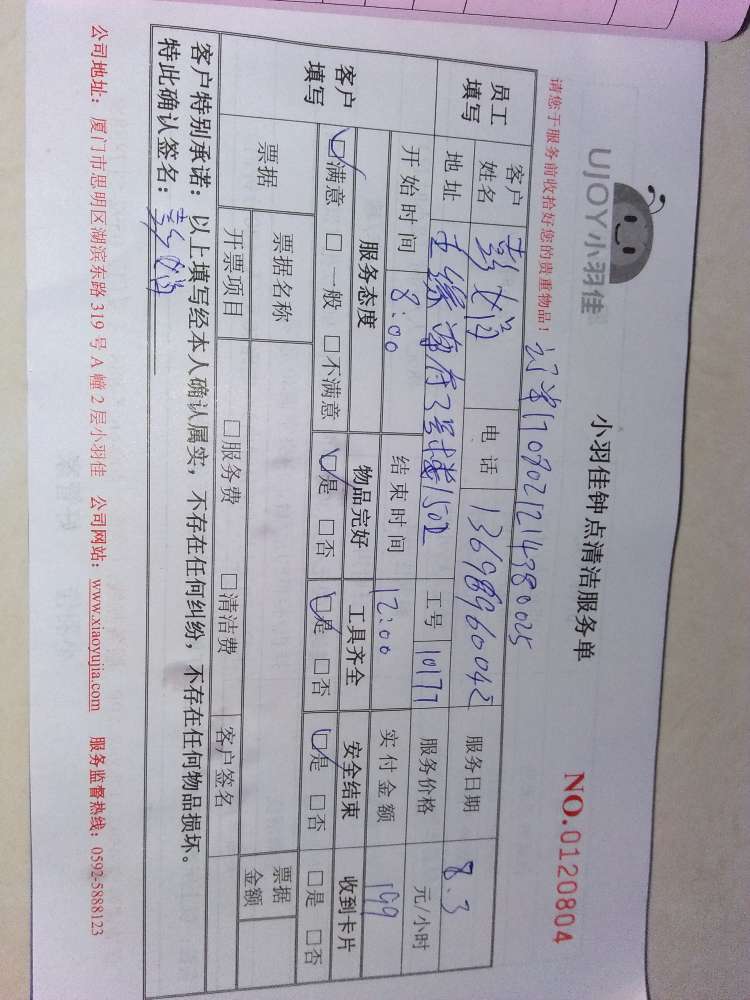 UJOY小羽佳
小羽佳钟点清洁服务单
NO.0120804
请您于服务前收拾好您的贵重物品！
员工填写 客户姓名 电话 13698960042 服务日期 8.3
地址 3号楼1502 工号 10177 服务价格 元/小时
开始时间 8:00 结束时间 12:00 实付金额 199
客户填写 服务态度 物品完好 工具齐全 安全结束 收到卡片
☑满意 □一般 □不满意 ☑是 □否 ☑是 □否 ☑是 □否 □是 □否
票据 票据名称 票据金额
开票项目 □服务费 □清洁费 客户签名
客户特别承诺：以上填写经本人确认属实，不存在任何纠纷，不存在任何物品损坏。
特此确认签名：
公司地址：厦门市思明区湖滨东路319号A幢2层小羽佳 公司网站：www.xiaoyujia.com 服务监督热线：0592-5888123